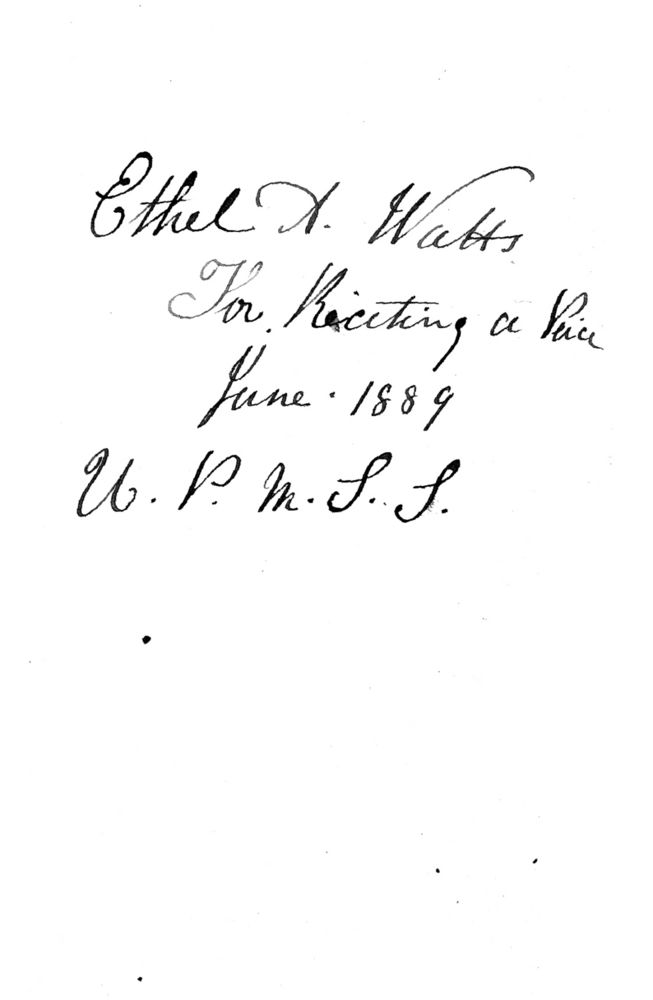 Ethel A. Watts
For Reciting a Peice
June. 1889
U. P. M. S. S.